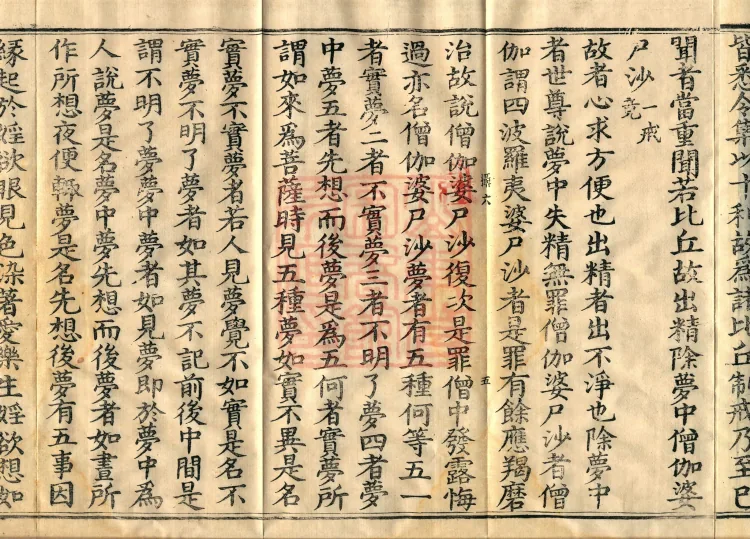 皆悉令集以十種故為諸比丘制戒乃至已
聞者當重聞若比丘故出精除夢中僧伽婆
尸沙一戒竟
故者心求方便也出精者出不淨也除夢中
者世尊說夢中失精無罪僧伽婆尸沙者僧
伽謂四波羅夷婆尸沙者是罪有餘應羯磨
治故說僧伽婆尸沙復次是罪僧中發露悔
六 五
過亦名僧伽婆尸沙夢者有五種何等五一
者實夢二者不實夢三者不明了夢四者夢
中夢五者先想而後夢是為五何者實夢所
謂如來為菩薩時見五種夢如實不異是名
實夢不實夢者若人見夢覺不如實是名不
實夢不明了夢者如其夢不記前後中間是
謂不明了夢夢中夢者如見夢即於夢中為
人說夢是名夢中夢先想而後夢者如晝所
作所想夜便輙夢是名先想後夢有五事因
緣起於婬欲眼見色染著愛樂生婬欲想如